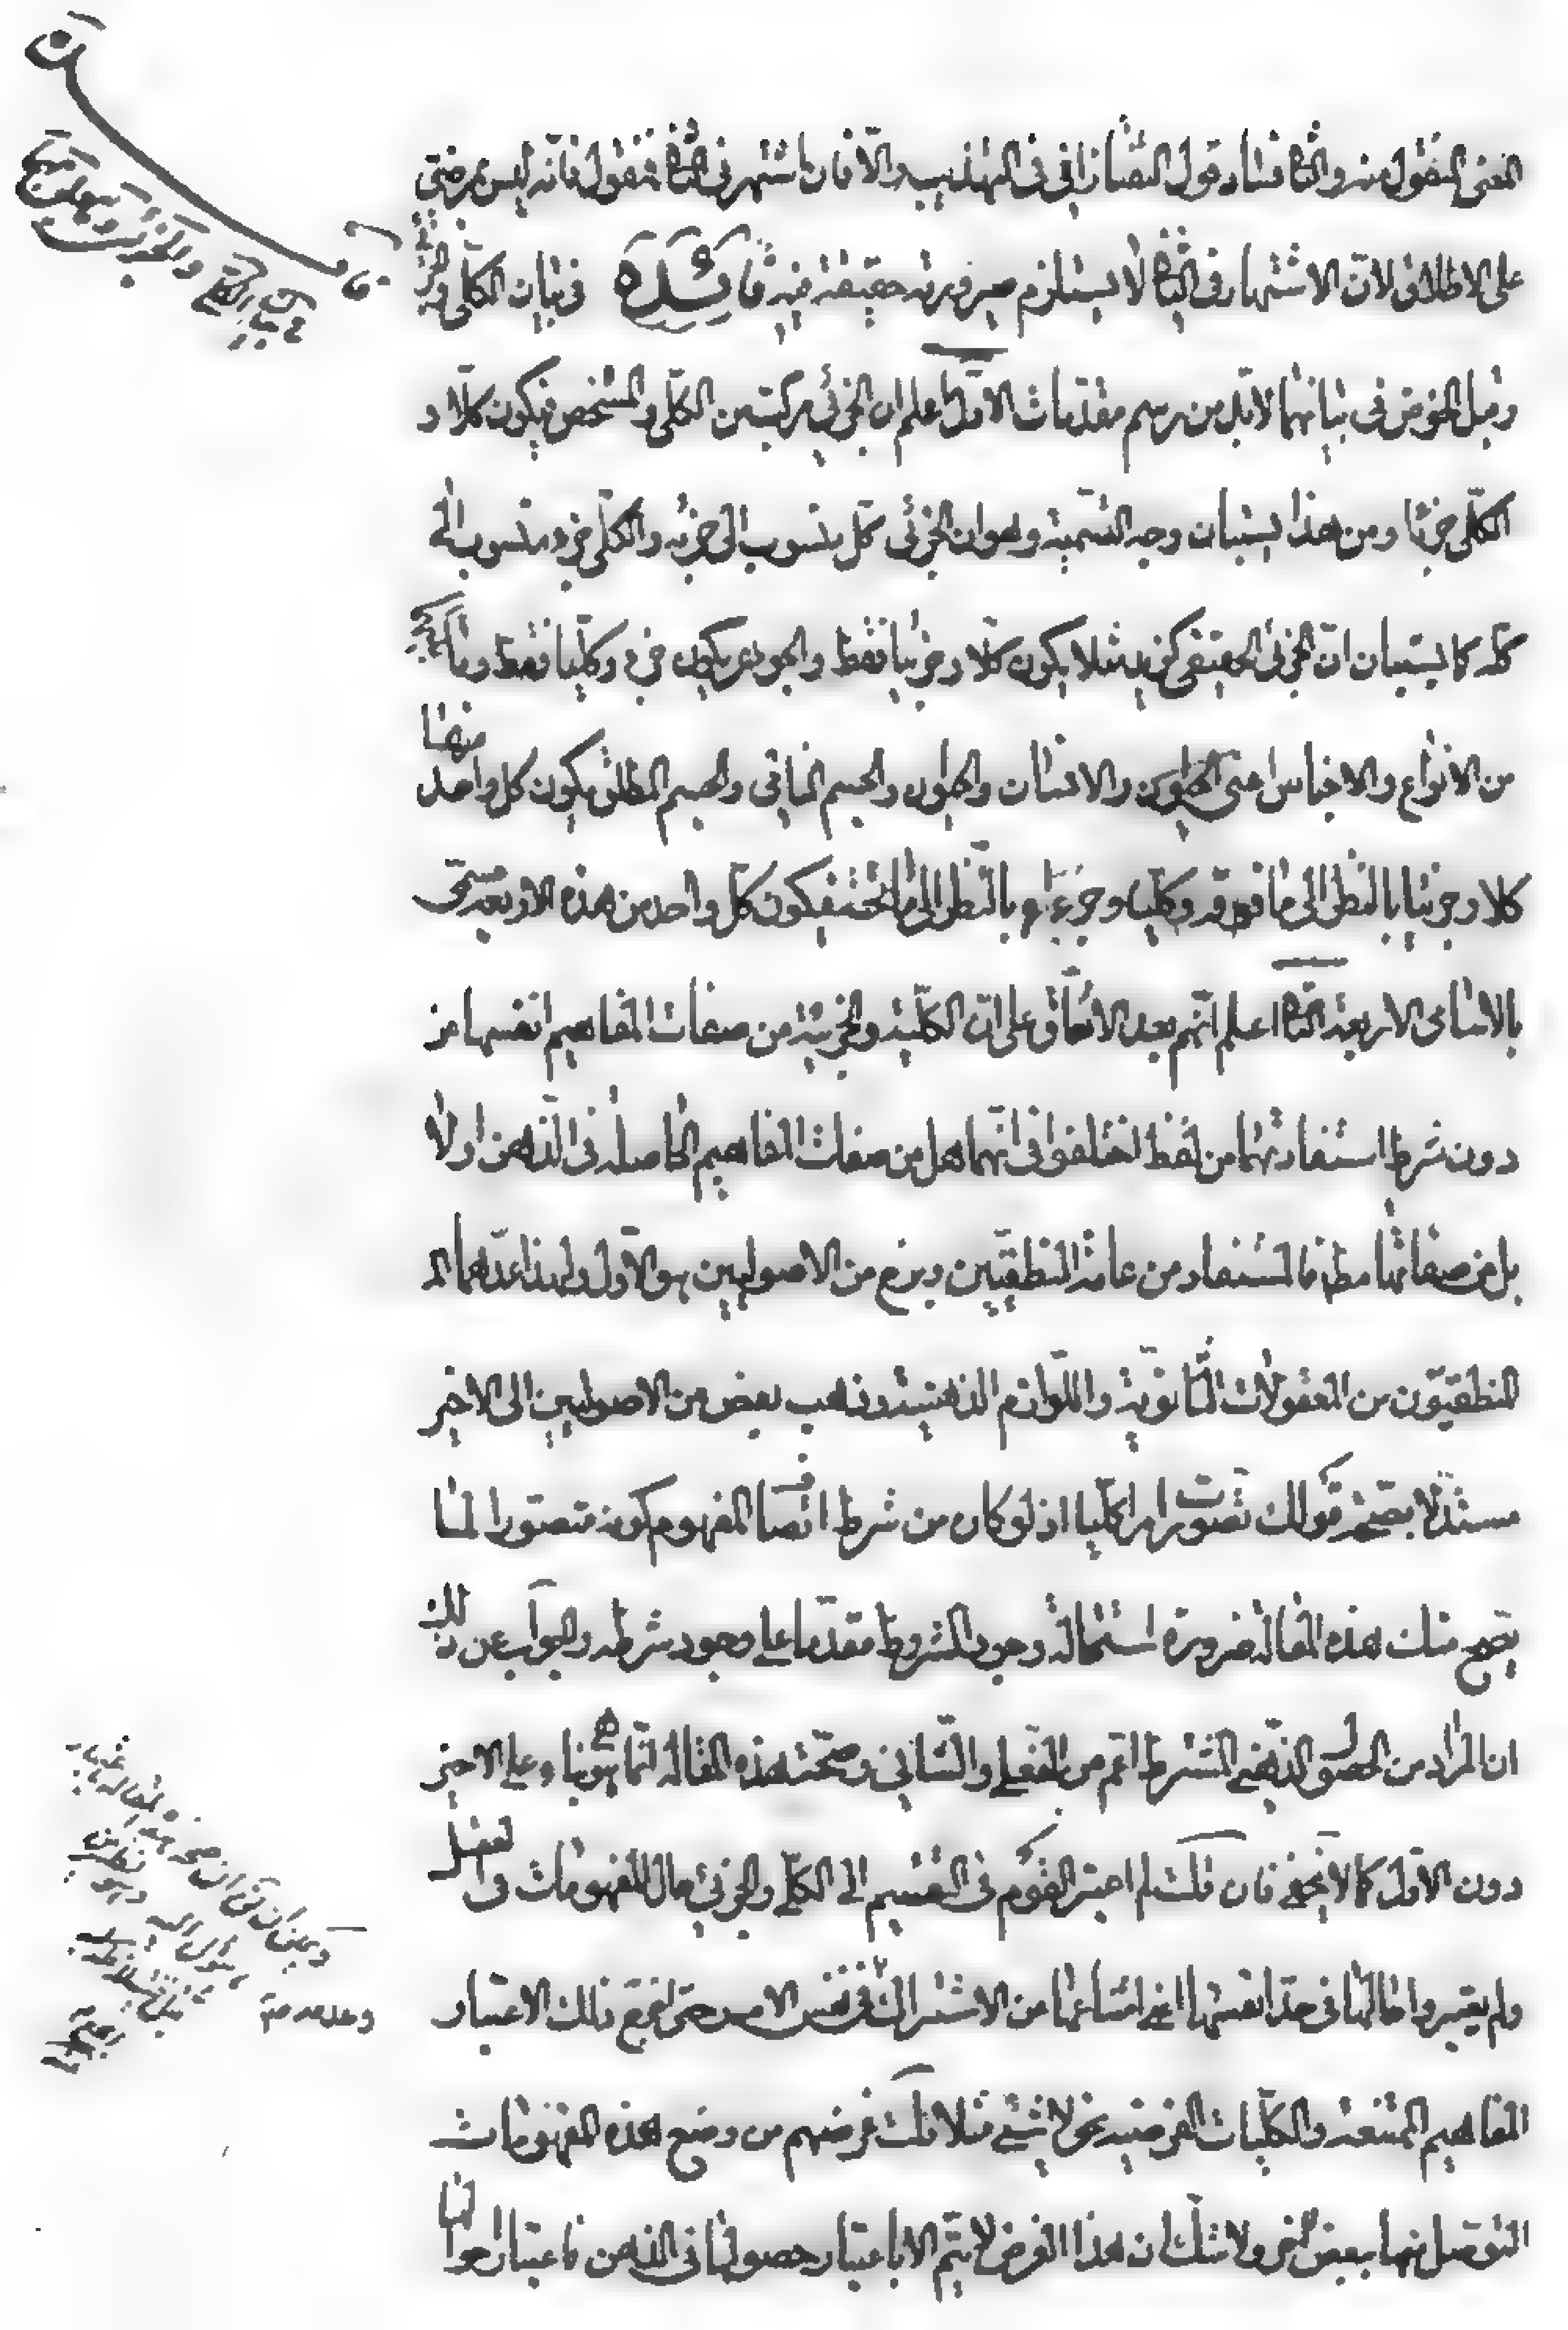 المعنى المنقول منه والثا فساد قول التفتازاني في التهذيب والا فان اشتهر في الثا فمنقول فانه ليس بمرضي
على الاطلاق لان الاشتهار في الثا لا يستلزم صيرورته حقيقة فيه فائدة في بيان الكلي والجزئي
وقبل الخوض في بيانهما لابد من رسم مقدمات الاول اعلم ان الجزئي مركب من الكلي والمشخص فيكون كلا و
الكلي جزئا ومن هذا يستبان وجه التسمية وهو ان الجزئي كل منسوب الى جزئه والكلي جزء منسوب الى
كله كما يستبان ان الجزئي الحقيقي كزيد مثلا يكون كلا وجزئيا فقط والجوهر يكون جزء وكليا فقط وما بينهما
من الانواع والاجناس اعنى الحيوان والانسان والجسم النامي والجسم المطلق يكون كل واحد منها
كلا وجزئيا بالنظر الى ما فوقه وكليا وجزءا بالنظر الى ما تحته فيكون كل واحد من هذه الاربعة مسمى
بالاسامي الاربعة الثا اعلم انهم بعد الاتفاق على ان الكلية والجزئية من صفات المفاهيم انفسها من
دون شرط استفادتهما من لفظ اختلفوا في انهما هل من صفات المفاهيم الحاصلة في الذهن اولا
بل من صفاتها مط فالمستفاد من عامة المنطقيين وبرخ من الاصوليين هو الاول ولهذا عدهما الم
المنطقيون من المعقولات الثانوية واللوازم الذهنية وذهب بعض من الاصوليين الى الاخير
مستدلا بصحة قولك تصورت امرا كليا اذ لو كان من شرط اتصاف المفهوم كونه متصورا لما
يصح مثل هذه المقالة ضرورة استحالة وجود المشروط مقدما على وجود شرطه والجواب عن ذلك
ان المراد من الحصول الذهني المشترط اعم من الفعلي والشأني وصحة هذه المقالة انما هي بناء على الاخير
دون الاول كما لا يخفى فان قلت لم اعتبر القوم في التقسيم الى الكلي والجزئي حال المفهومات في العقل
ولم يعتبروا حالها في حد انفسها اعني امتناعها من الاشتراك في نفس الامر حتى يخرج ذلك الاعتبار
المفاهيم الممتنعة والكليات الفرضية نحو لا شيء مثلا قلت غرضهم من وضع هذه المفهومات
التوصل بها ببعض اخر ولا شك ان هذا الغرض لا يتم الا باعتبار حصولها في الذهن فاعتبار احوالها
في بيان الكلي والجزئي وما يتعلق بهما